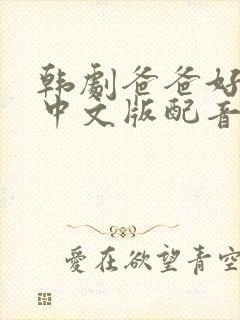 韩劇爸爸好
中文版配音
愛在欲望青空